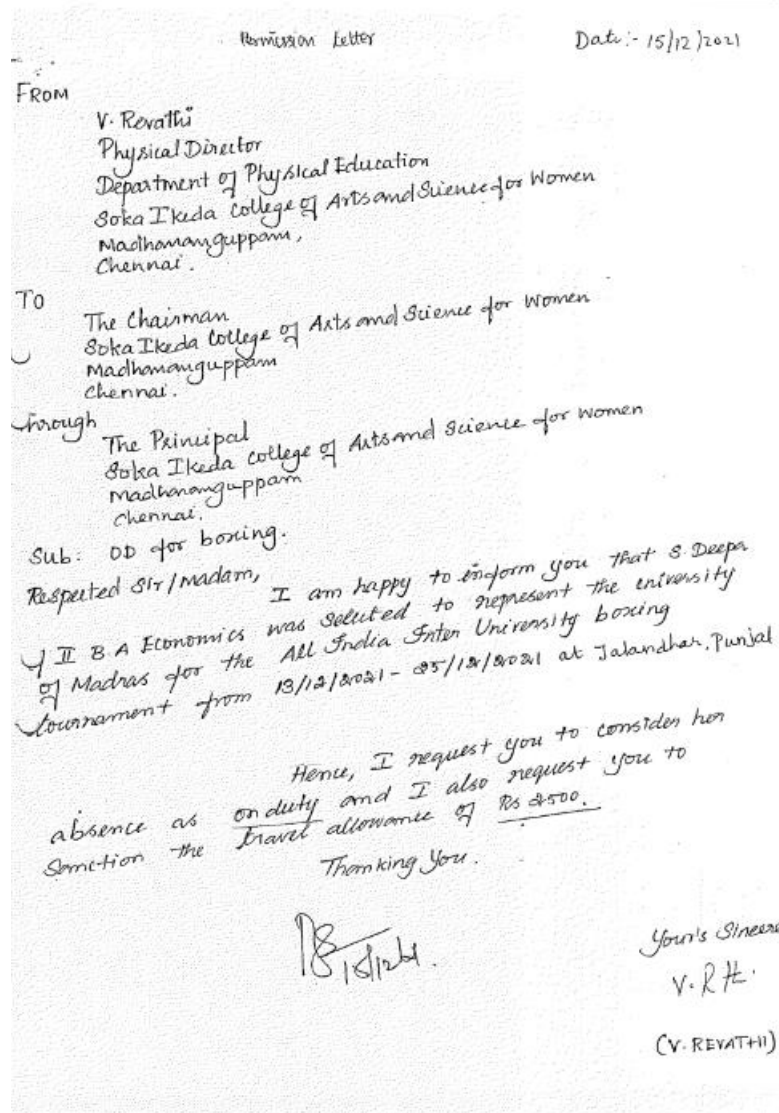 Permission Letter
Date:- 15/12/2021
FROM
V. Revathi
Physical Director
Department of Physical Education
Soka Ikeda College of Arts and Science for Women
Madhanamguppam,
Chennai.
To
The Chairman
Soka Ikeda College of Arts and Science for Women
Madhanamguppam
Chennai.
Through
The Principal
Soka Ikeda College of Arts and Science for Women
Madhanamguppam
Chennai.
Sub: OD for boxing.
Respected Sir/Madam,
I am happy to inform you that S. Deepa
of II B.A Economics was selected to represent the university
of Madras for the All India Inter University boxing
tournament from 13/12/2021 - 25/12/2021 at Jalandhar, Punjab
Hence, I request you to consider her
absence as on duty and I also request you to
Sanction the travel allowance of Rs 2500.
Thanking You.
15/12/21.
Your's Sincere
V. R
(V. REVATHI)